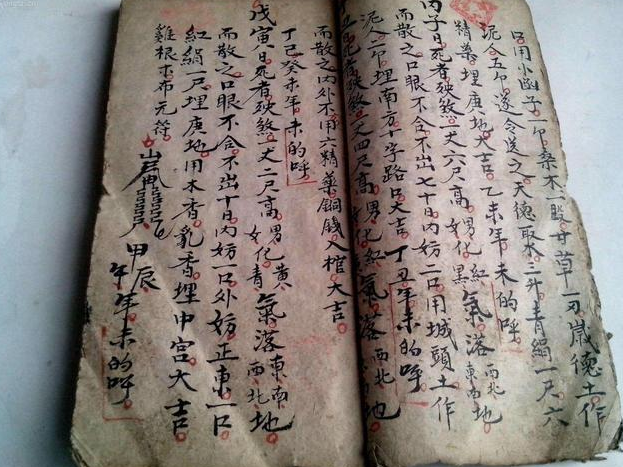 口用小函子一个桑木一股甘草一刃歲德土作
泥人五个送令送之天德取水三升青絹一尺六
精藥埋庚地大吉乙未年未的呼
丙子日死者殃煞一丈六尺高男化紅女黑氣落西北東南地
而散之口眼不合不出七十日内妨二口用城頭土作
泥人二个埋南方十字路口大吉丁丑年未的呼
死者殃煞丈四尺高男化紅女氣落西北地
而散之内外不用六精藥銅錢入棺大吉
丁巳癸未年未的呼
戊寅日死者殃煞一丈二尺高男化黃女青氣落東南西北地
而散之口眼不合不出十日内妨一口外妨正東一口
紅絹一尺埋庚地用木香乳香埋中宮大吉
雞根木布元符
甲辰
午年未的呼